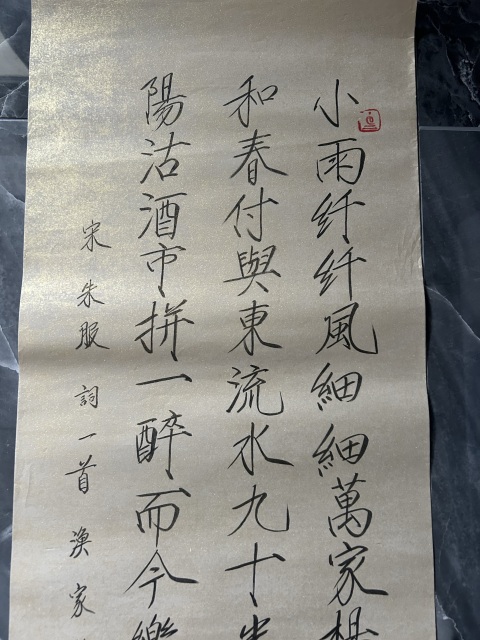 小雨纤纤風細細萬家楊
和春付與東流水九十光
陽沽酒市拼一醉而今樂
宋朱服詞一首漁家